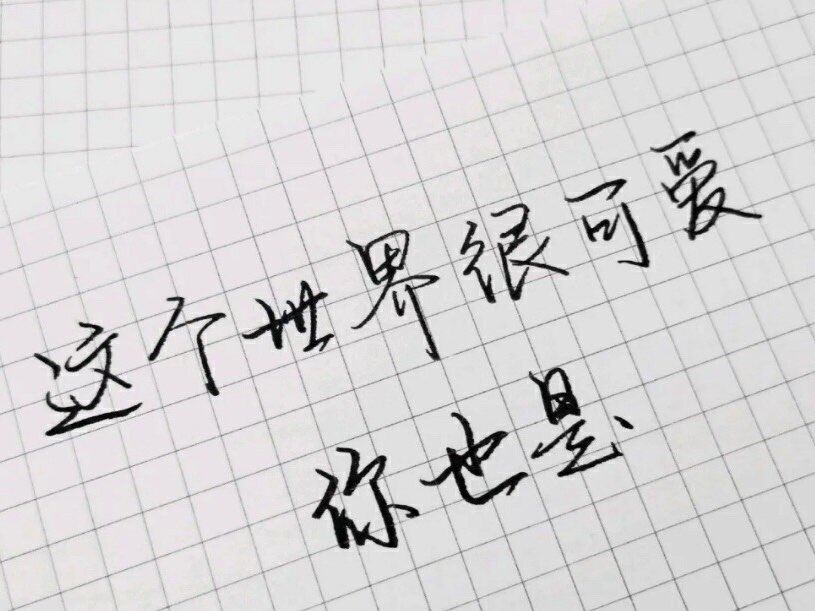 这个世界很可爱
你也是